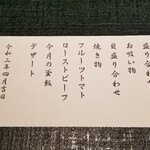 盛り合わせ
お吸い物
貝盛り合わせ
焼き物
フルーツトマト
ローストビーフ
今月の釜飯
デザート
令和三年四月吉日